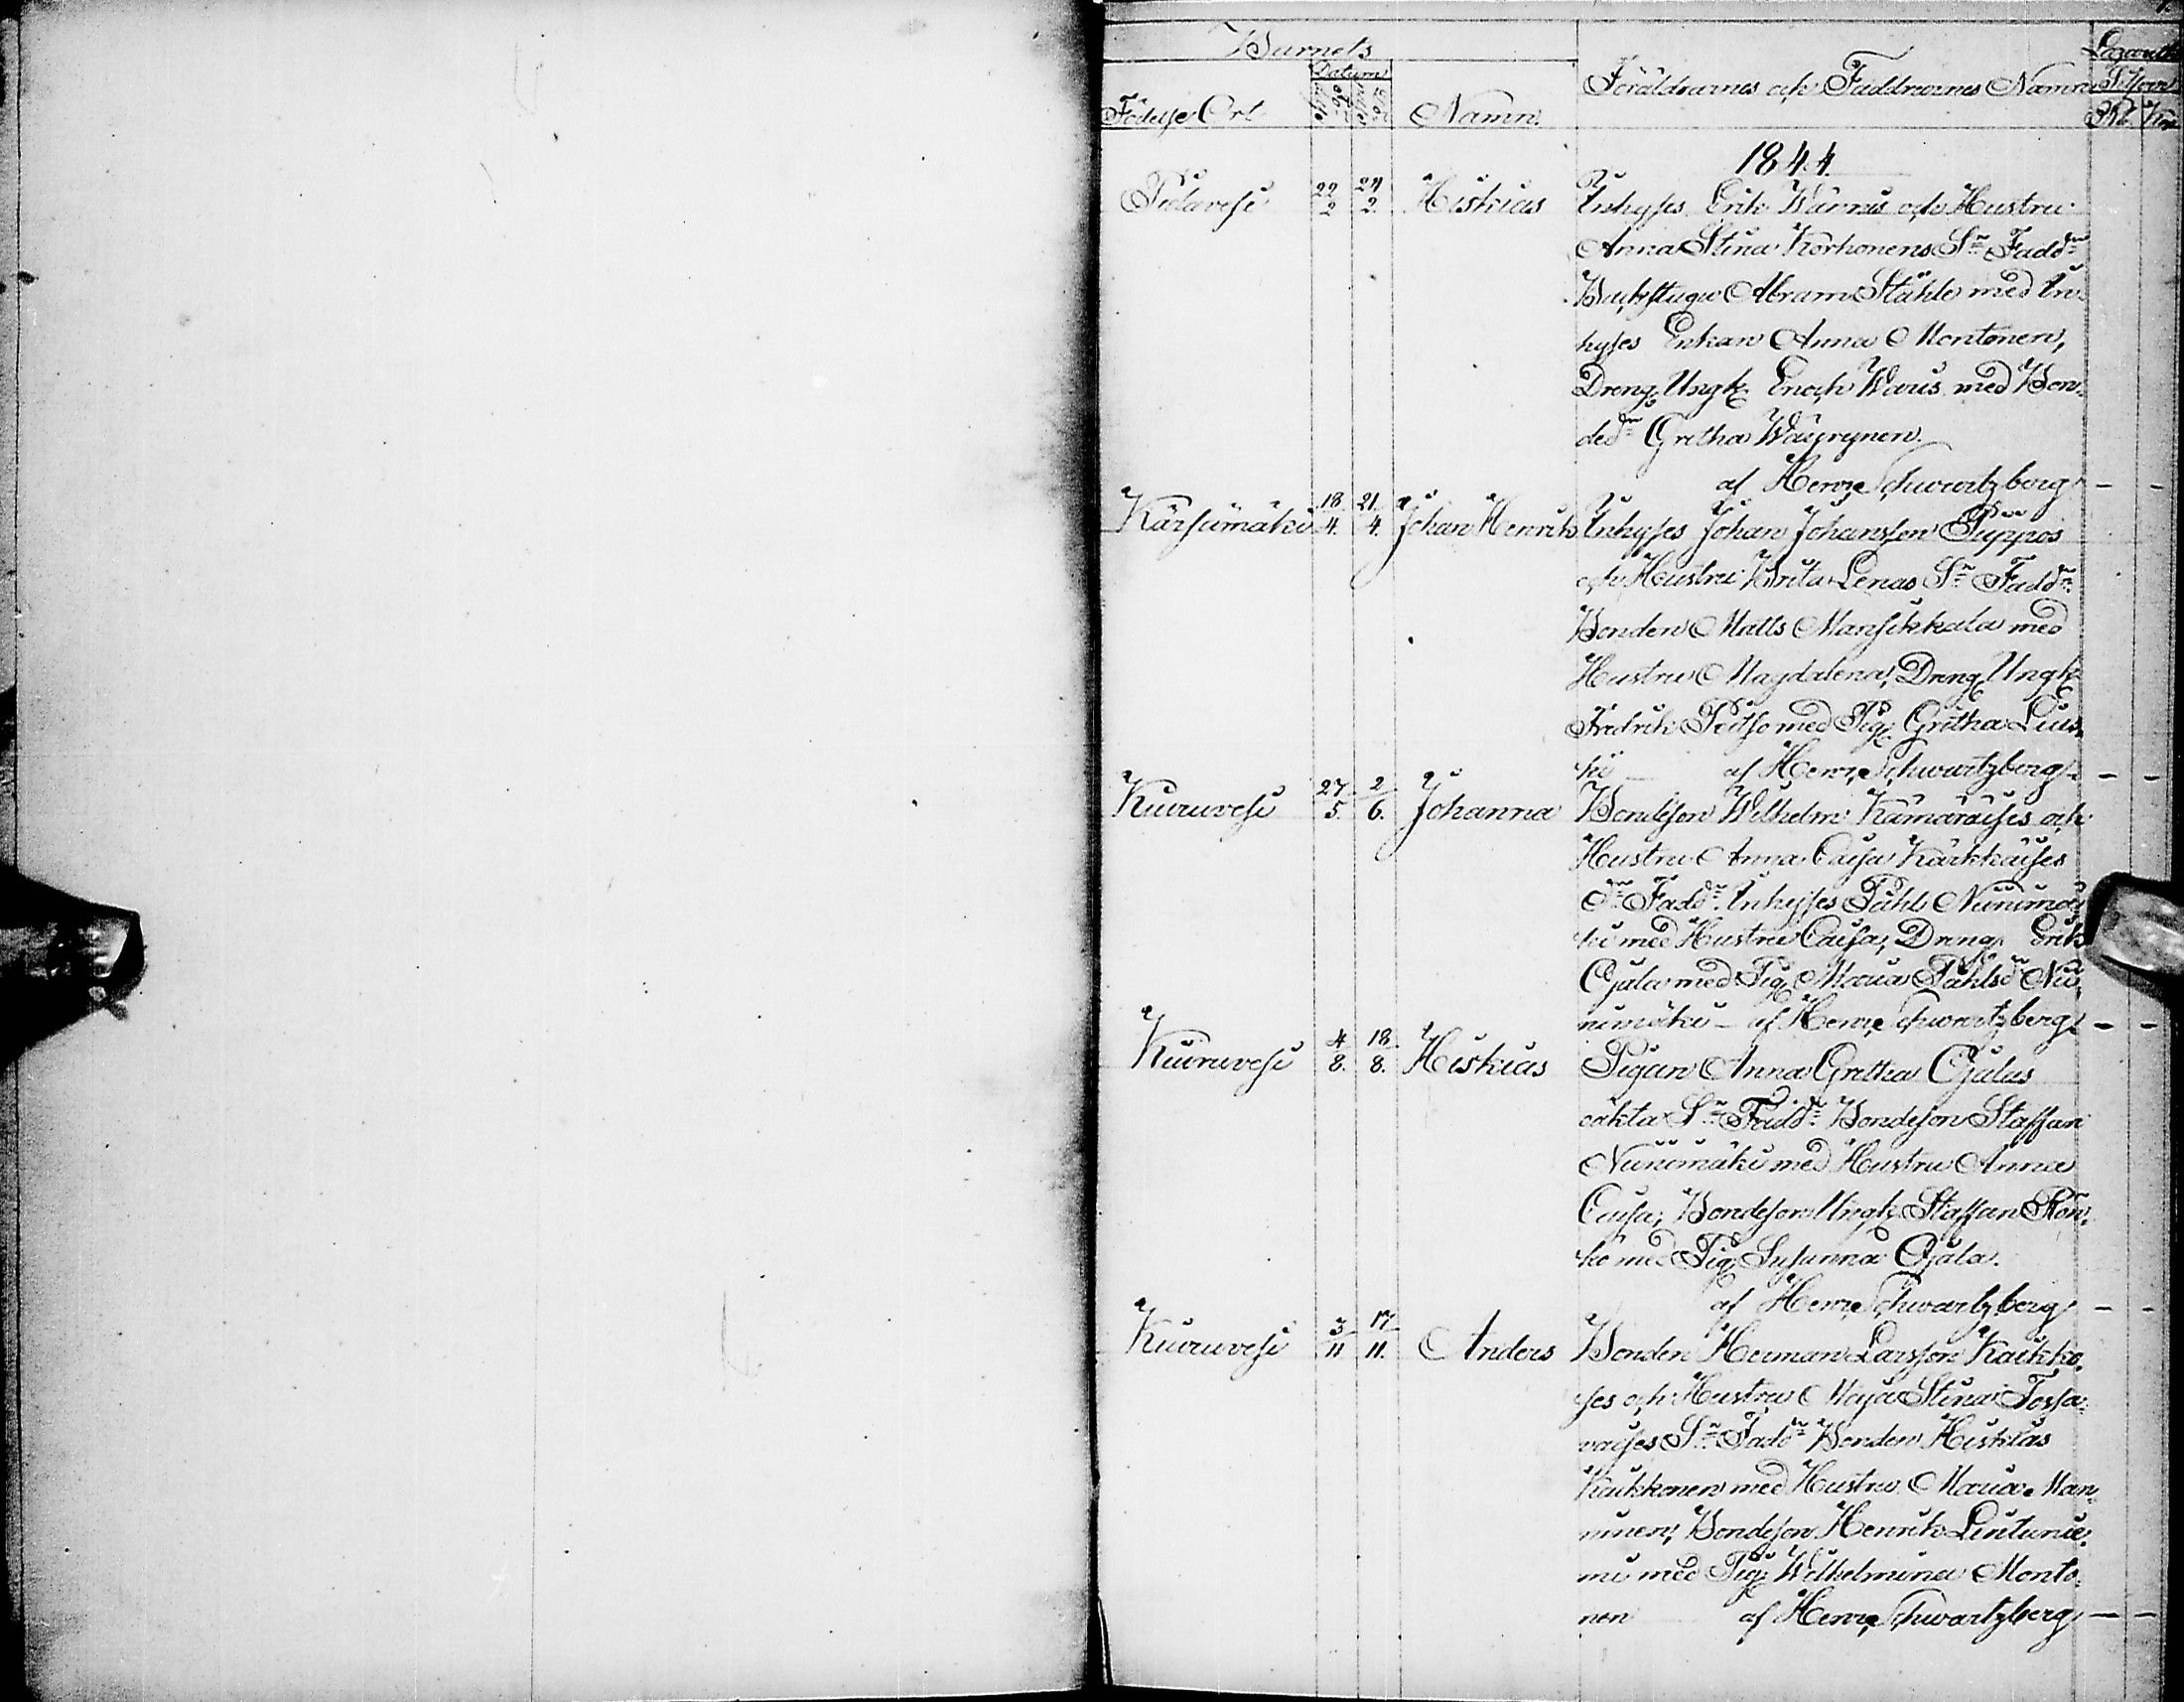 Barnets
Datum
Föräldrarnes och Faddrarnes Namn
Födelse Ort
Namn.
1844.
Pidavesi 22/2 24/2 Hiskias Inhyses Erik Waris och Hustru
Anna Stina Korhonens Sn Faddr
Backstugu Abram Ståhle med In-
hyses Enkan Anna Montonen,
Dreng Ungk Enoch Waris med Bon-
dedr Gretha Wäyrynen.
af Henr Schwartzberg - -
Kärsämäki 18/4. 21/4. Johan Henrik Inhyses Johan Johansson Seppos
och Hustru Brita Lenas Sn Faddr
Bonden Matts Mansikkala med
Hustru Magdalena, Dreng Ungk
Fredrik med Pig Gretha Lius-
ki af Henr Schwartzberg - -
Kiuruvesi 27/5. 2/6. Johanna Bondeson Wilhelm Kämäräises och
Hustru Anna Caisa Kärkkäises
Dr Faddr Inhyses Påhl Niinimä-
ki med Hustru Caisa, Dreng Erik
Ojala med Pig Maria Påhlsdr Nii-
nimäki - af Henr Schwartzberg - -
Kiuruvesi 4/8. 18/8. Hiskias Pigan Anna Gretha Ojalas
oäkta Sn Faddr Bondeson Staffan
Niinimäki med Hustru Anna
Caisa, Bondeson Ungk Staffan Rön-
kö med Pig Susanna Ojala.
af Henr Schwartzberg - -
Kiuruvesi 3/11 17/11. Anders Bonden Herman Larsson Kaikko-
ses och Hustru Maja Stina Tossa-
vaises Sn Faddr Bonden Hiskias
Kaikkonen med Hustru Maria Man-
ninen, Bondeson Henrik Lintunie-
mi med Pig Wilhelmina Monto-
nen af Henr Schwartzberg - -